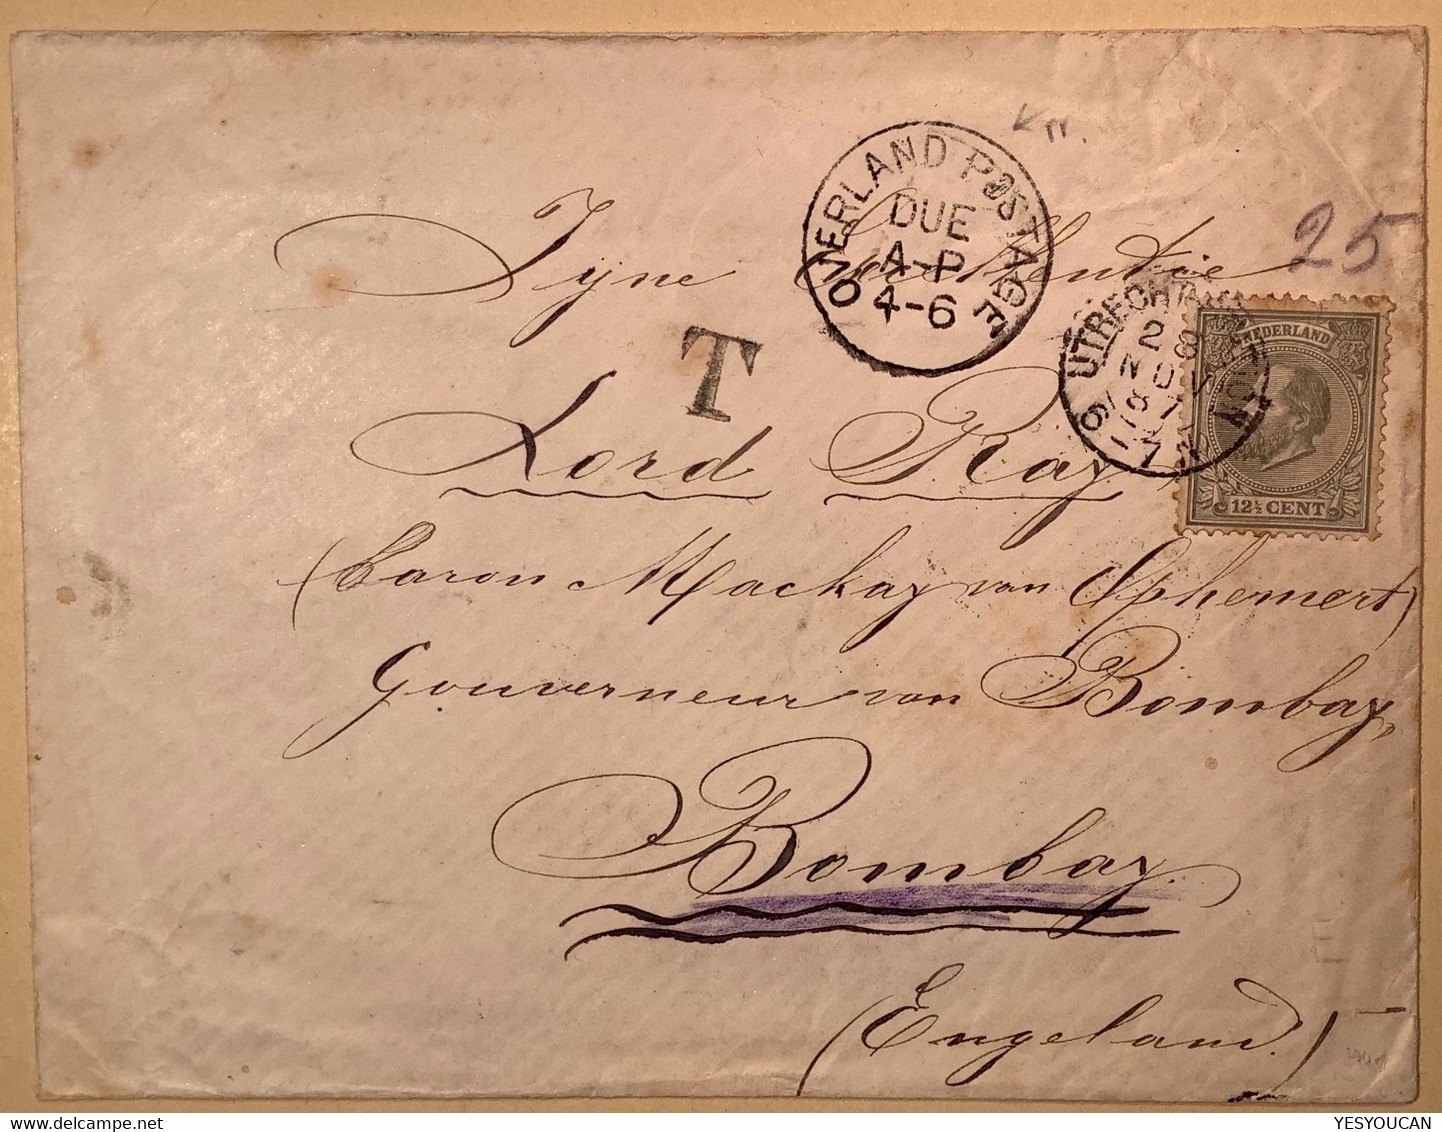 OVERLAND POSTAGE
DUE
A-P
4-6
25
Zyne Excellentie
T
UTRECHT
28
NOV
NEDERLAND
12½ CENT
Lord Ray
(baron Mackay van Ophemert)
Gouverneur van Bombay,
Bombay.
(Engeland.)
YESYOUCAN